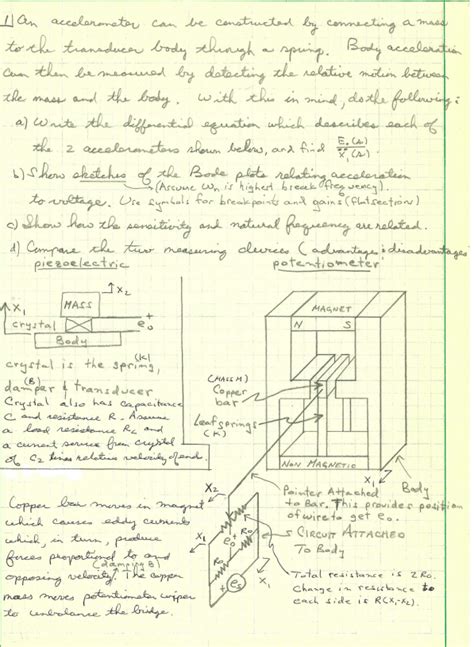 1) An accelerometer can be constructed by connecting a mass
to the transducer body through a spring. Body acceleration
can then be measured by detecting the relative motion between
the mass and the body. With this in mind, do the following:
a) Write the differential equation which describes each of
the 2 accelerometers shown below, and find E₀(s)/X₁(s).
b) Show sketches of the Bode plots relating acceleration
(Assume Wn is highest break frequency).
to voltage. Use symbols for breakpoints and gains (flat section)
c) Show how the sensitivity and natural frequency are related.
d) Compare the two measuring devices (advantages & disadvantages)
piezoelectric
potentiometer
X₂
X₁
MASS
crystal
e₀
Body
crystal is the spring, (K)
damper & transducer (B)
Crystal also has capacitance
C and resistance R. Assume
a load resistance RL and
a current source from crystal
of C₂ times relative velocity of end.
Copper bar moves in magnet
which causes eddy currents
which, in turn, produce
forces proportional to and
opposing velocity. (damping B) The copper
mass moves potentiometer wiper
to unbalance the bridge.
MAGNET
N S
(MASS M)
Copper
bar
Leaf springs
(K)
NON MAGNETIC
X₁
Body
Pointer Attached
to Bar. This provides position
of wire to get e₀.
CIRCUIT ATTACHED
To Body
X₂
X₁
e₀
R₀
R₀
X₁
+
es
Total resistance is 2R₀.
Change in resistance to
each side is R(X₁-X₂).